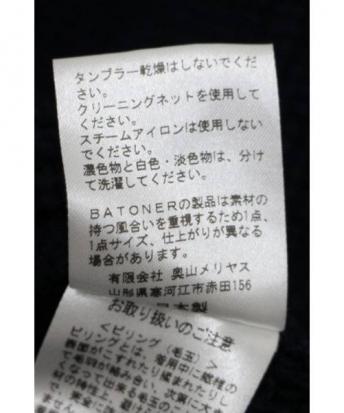 タンブラー乾燥はしないでくだ
さい。
クリーニングネットを使用して
ください。
スチームアイロンは使用しない
でください。
濃色物と白色・淡色物は、分け
て洗濯してください。
BATONERの製品は素材の
持つ風合いを重視するため1点、
1点サイズ、仕上がりが異なる
場合があります。
有限会社 奥山メリヤス
山形県寒河江市赤田156
日本製
お取り扱いのご注意
<ピリング(毛玉)>
ピリングとは、着用中に
表面がこすれたり揉まれたりし
て毛羽が絡み合い、次第に
くなって出来る毛玉の